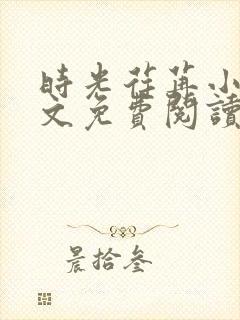 時光荏苒小
文免費閱讀
晨拾叁